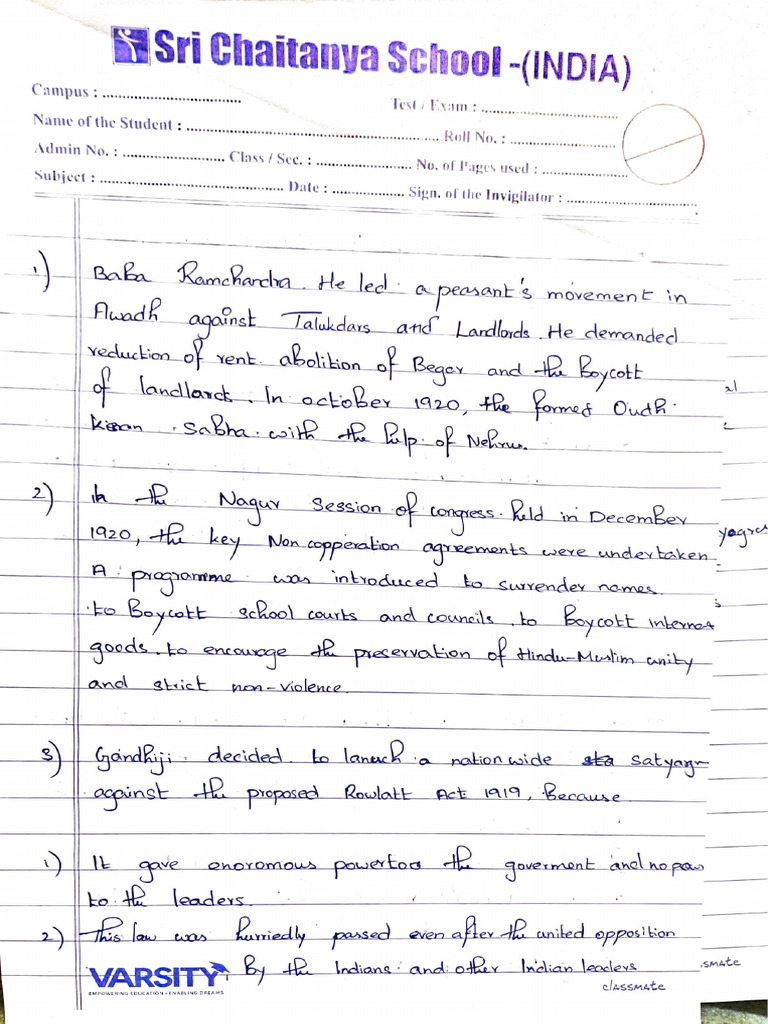 Sri Chaitanya School -(INDIA)
Campus : ..........
Test / Exam : ..........
Name of the Student : .......... Roll No. : ..........
Admin No. : .......... Class / Sec. : .......... No. of Pages used : ..........
Subject : .......... Date : .......... Sign. of the Invigilator : ..........
1) Baba Ramchandra. He led a peasant's movement in
Awadh against Talukdars and Landlords. He demanded
reduction of rent abolition of Begar and the Boycott
of landlords. In october 1920, the formed Oudh
kisan Sabha with the help of Nehru.
2) In the Nagur Session of congress held in December
1920, the key Non coppertion agreements were undertaken
A programme was introduced to surrender names
to Boycott school courts and councils to Boycott
goods. to encourage the preservation of Hindu-Muslim unity
and strict non-violence.
3) Gandhiji decided to launch a nation wide satyagr
against the proposed Rowlatt Act 1919, Because
1) It gave enoromous power the goverment and no
to the leaders.
2) This law was hurriedly passed even after the united opposition
By the Indians and other Indian leaders
VARSITY
EMPOWERING EDUCATION - ENABLING DREAMS
classmate
yagras
smate